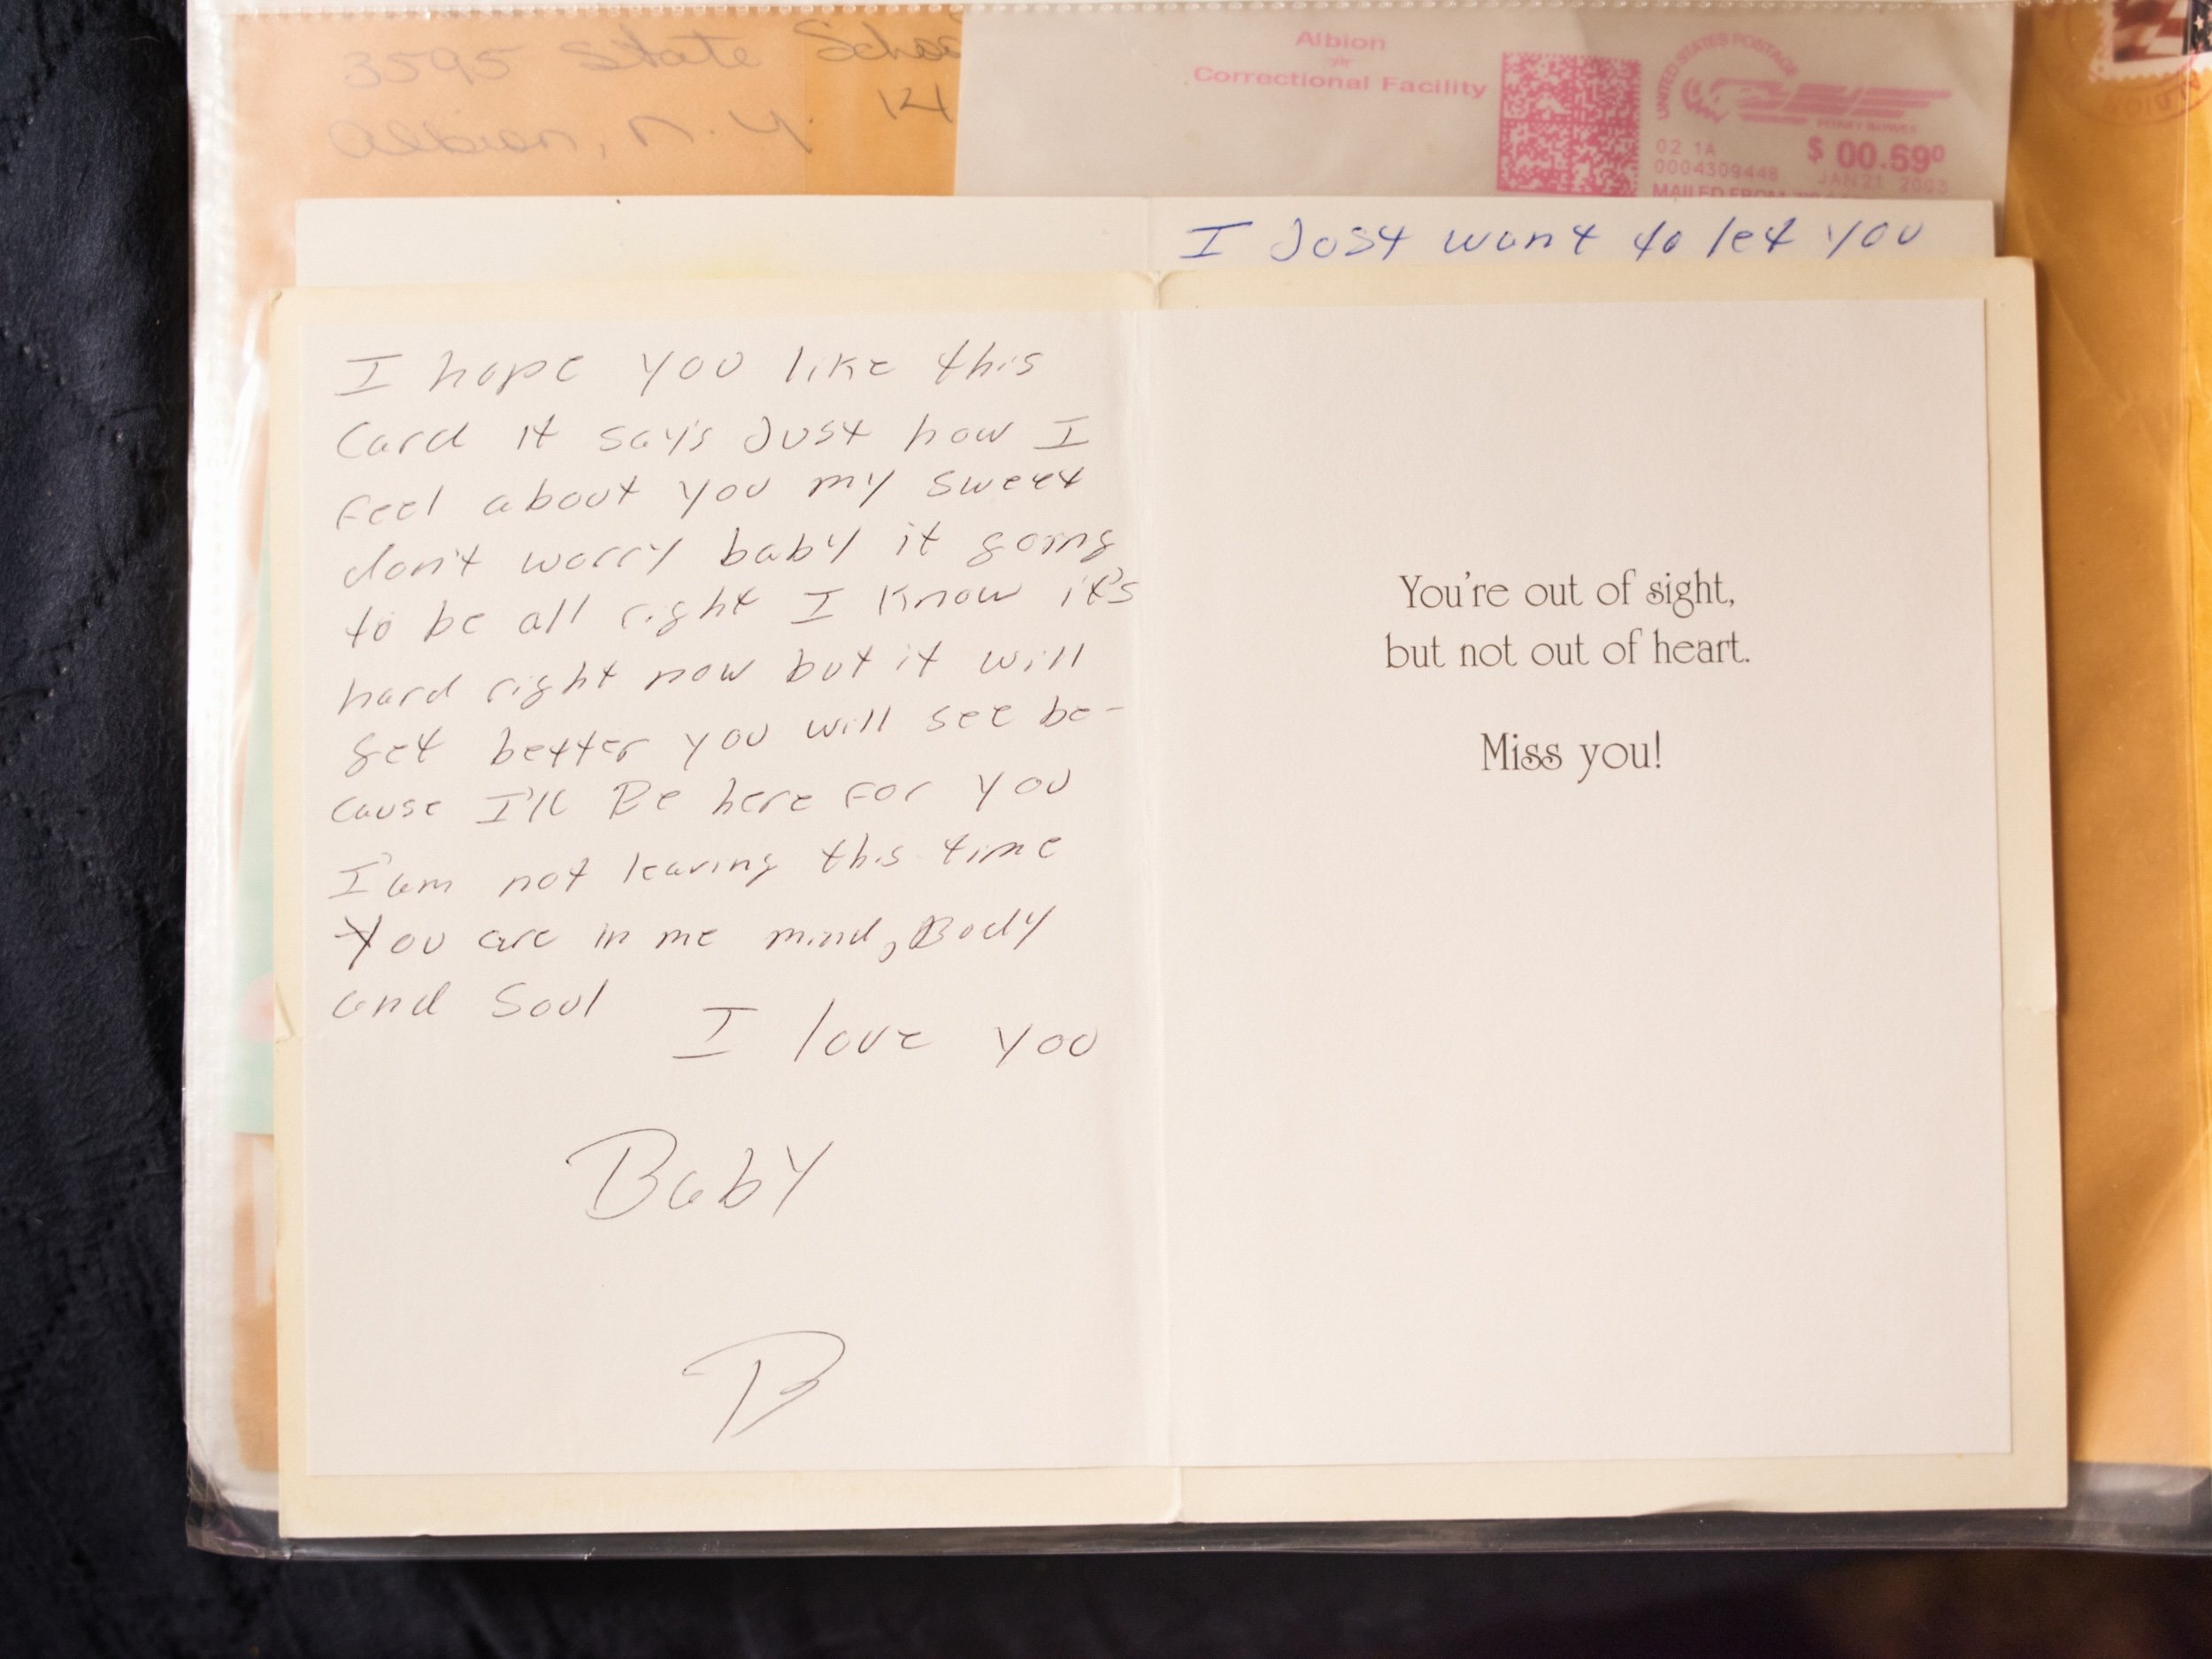 3595 State Schoo
Albion, N.Y. 14
Albion
Correctional Facility
UNITED STATES POSTAGE
PITNEY BOWES
02 1A
$ 00.69⁰
0004309448
JAN 21 2003
MAILED FROM
ALBION
I Just want to let you
I hope you like this
Card it say's Just how I
Feel about you my sweet
don't worry baby it going
to be all right I know it's
hard right now but it will
get better you will see be-
cause I'll Be here For you
I'am not leaving this time
You are in me mind, Body
and Soul
I love you
Baby
B
You're out of sight,
but not out of heart.
Miss you!